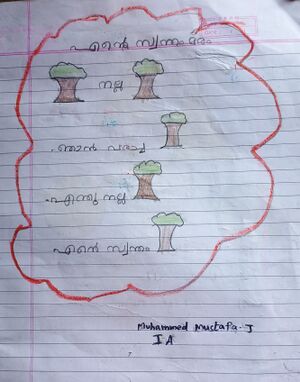 എന്റെ സ്വന്തം മരം
നല്ല
ഞാൻ വരച്ച
എന്തു നല്ല
എന്റെ സ്വന്തം
Muhammed Mustafa. J
I A